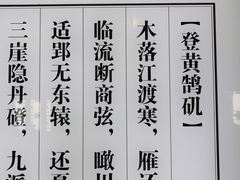 【登黄鹄矶】
木落江渡寒，雁还
临流断商弦，瞰川
适郢无东辕，还夏
三崖隐丹磴，九派